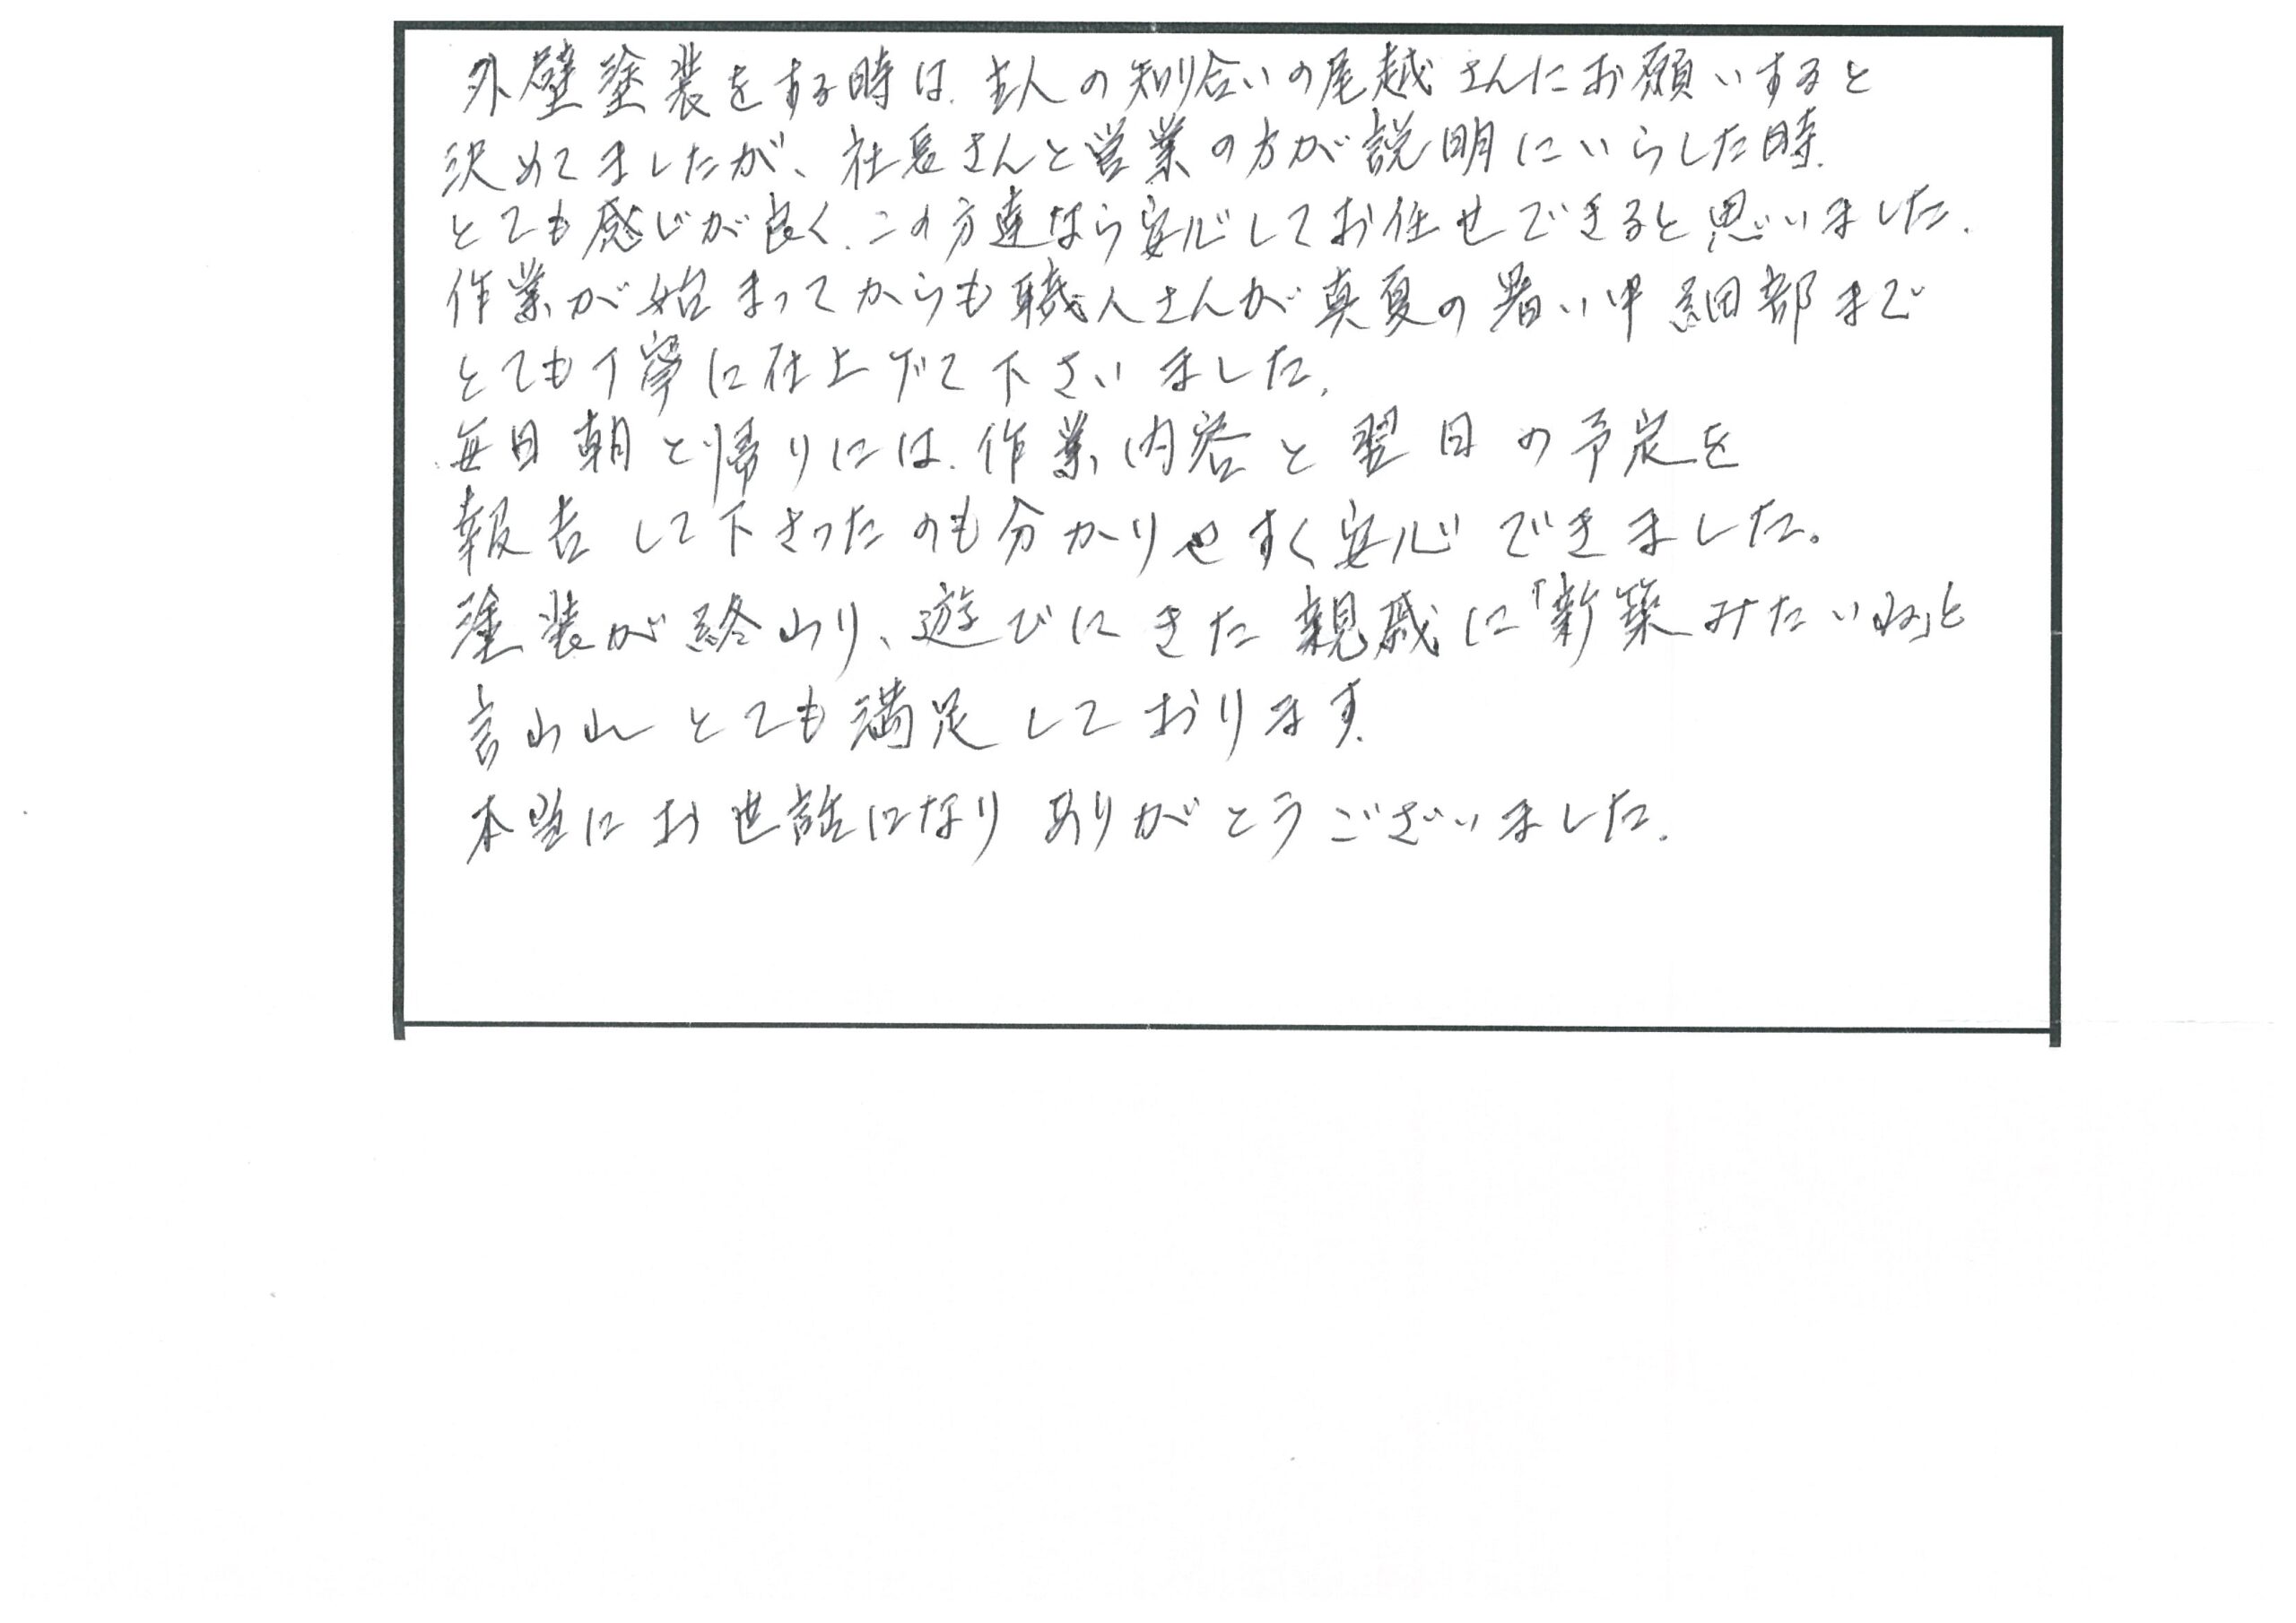 外壁塗装をする時は、主人の知り合いの尾越さんにお願いすると
決めてましたが、社長さんと営業の方が説明にいらした時、
とても感じが良く、この方達なら安心してお任せできると思いました。
作業が始まってからも職人さんが真夏の暑い中細部まで
とても丁寧に仕上げて下さいました。
毎日朝と帰りには、作業内容と翌日の予定を
報告して下さったのも分かりやすく安心できました。
塗装が終わり、遊びにきた親戚に「新築みたいね」と
言われとても満足しております。
本当にお世話になりありがとうございました。